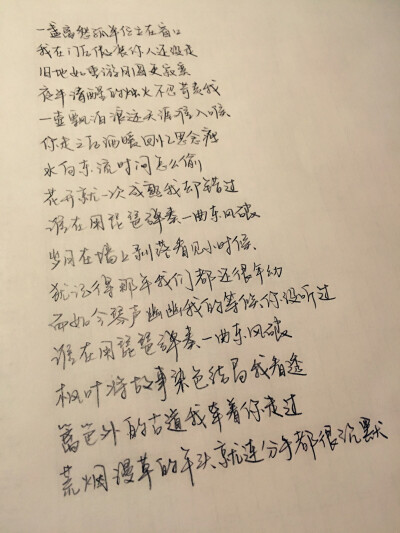 一盏离愁孤单伫立在窗口
我在门后假装你人还没走
旧地如重游月圆更寂寞
夜半清醒的烛火不忍苛责我
一壶飘泊浪迹天涯难入喉
你走之后酒暖回忆思念瘦
水向东流时间怎么偷
花开就一次成熟我却错过
谁在用琵琶弹奏一曲东风破
岁月在墙上剥落看见小时候
犹记得那年我们都还很年幼
而如今琴声幽幽我的等候你没听过
谁在用琵琶弹奏一曲东风破
枫叶将故事染色结局我看透
篱笆外的古道我牵着你走过
荒烟漫草的年头就连分手都很沉默